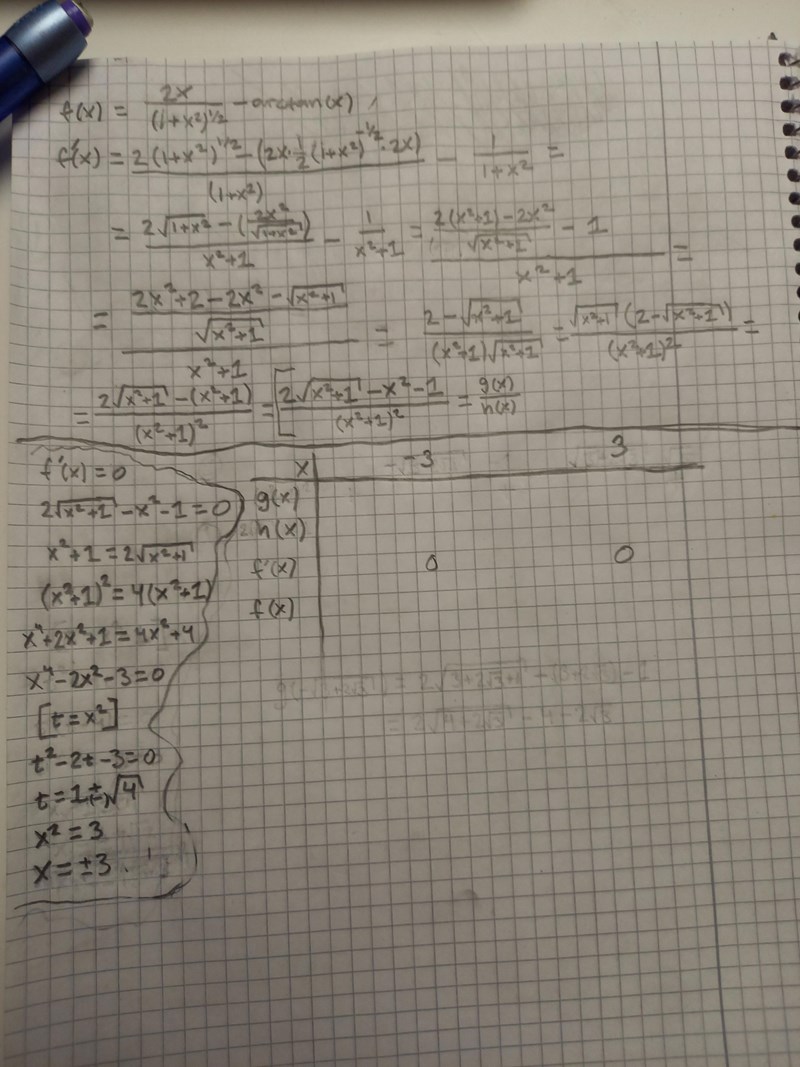 f(x) = 2x/(1+x²)^(1/2) - arctan(x)
f'(x) = (2(1+x²)^(1/2) - (2x·1/2(1+x²)^(-1/2)·2x))/(1+x²) - 1/(1+x²) =
= (2√(1+x²) - (2x²/√(1+x²)))/(x²+1) - 1/(x²+1) = ((2(x²+1)-2x²)/√(x²+1) - 1)/(x²+1) =
= ((2x²+2-2x²-√(x²+1))/√(x²+1))/(x²+1) = (2-√(x²+1))/((x²+1)√(x²+1)) = (√(x²+1)(2-√(x²+1)))/(x²+1)² =
= (2√(x²+1)-(x²+1))/(x²+1)² = [(2√(x²+1)-x²-1)/(x²+1)² = g(x)/h(x)
f'(x)=0
2√(x²+1)-x²-1=0
x²+1=2√(x²+1)
(x²+1)²=4(x²+1)
x⁴+2x²+1=4x²+4
x⁴-2x²-3=0
[t=x²]
t²-2t-3=0
t=1±√4
x²=3
x=±3
x -3 3
g(x)
h(x)
f'(x) 0 0
f(x)